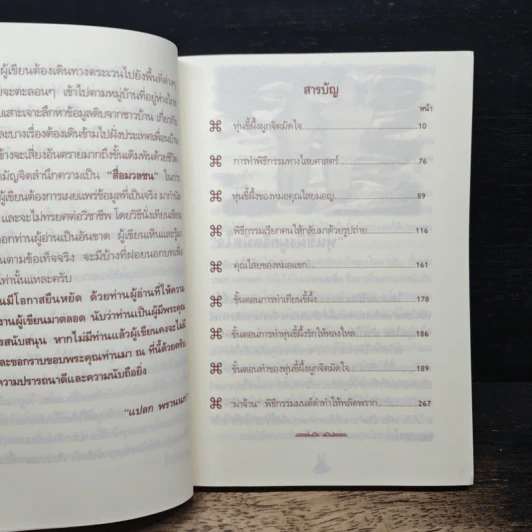 ผู้เขียนต้องเดินทางตระเวนไปยังพื้นที่ต่างๆ
จะตะลอนๆ เข้าไปตามหมู่บ้านที่อยู่ห่างไกล
เสาะเจาะลึกหาข้อมูลดิบจากชาวบ้าน เกี่ยวกับ
และบางเรื่องต้องเดินข้ามไปฝั่งประเทศเพื่อนบ้าน
ข้างจะเสี่ยงอันตรายมากถึงขั้นเดิมพันด้วยชีวิต
มัญจิตสำนึกความเป็น "สื่อมวลชน" ในการ
ผู้เขียนต้องการเผยแพร่ข้อมูลที่เป็นจริง มากำนัล
และจะไม่ทรยศต่อวิชาชีพ โดยวิธีนั่งเทียนเขียน
อกท่านผู้อ่านเป็นอันขาด ผู้เขียนเห็นและรู้
นตามข้อเท็จจริง จะมีบ้างที่ฝอยนอกบท
ท่านั้นแหละครับ
นมีโอกาสยืนหยัด ด้วยท่านผู้อ่านที่ให้ความ
งานผู้เขียนมาตลอด นับว่าท่านเป็นผู้มีพระคุณ
รสนับสนุน หากไม่มีท่านแล้วผู้เขียนคงจะไม่
ละขอกราบขอบพระคุณท่านมา ณ ที่นี้ด้วยครับ
ความปรารถนาดีและความนับถือยิ่ง
"แปลก พรานนก"
สารบัญ
หน้า
หุ่นขี้ผึ้งผูกจิตมัดใจ 10
การทำพิธีกรรมทางไสยศาสตร์ 76
หุ่นขี้ผึ้งของหมอคุณไสยมอญ 89
พิธีกรรมเรียกคนให้กลับมาด้วยรูปถ่าย 116
คุณไสยของหมอแขก 161
ขั้นตอนการทำเทียนขี้ผึ้ง 178
ขั้นตอนการทำหุ่นขี้ผึ้งรักให้หลงใหล 186
ขั้นตอนทำของหุ่นขี้ผึ้งผูกจิตมัดใจ 189
"ผ่าจ้าน" พิธีกรรมมนต์ดำทำให้พลัดพราก 267